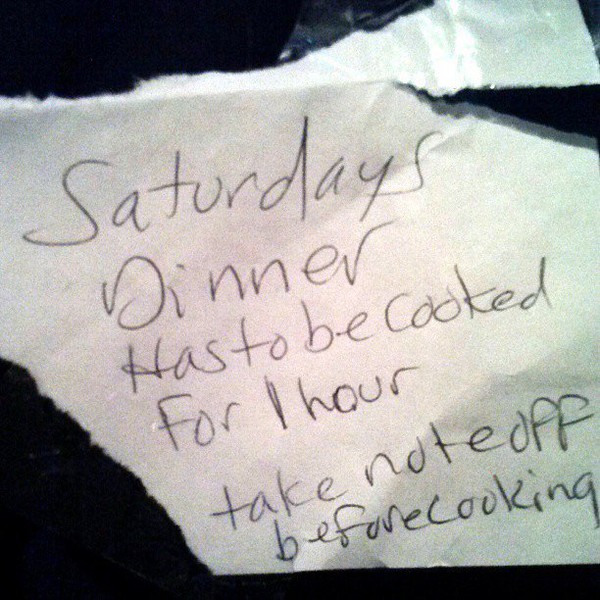 Saturdays
Dinner
Has to be Cooked
For 1 hour
take note off
before cooking